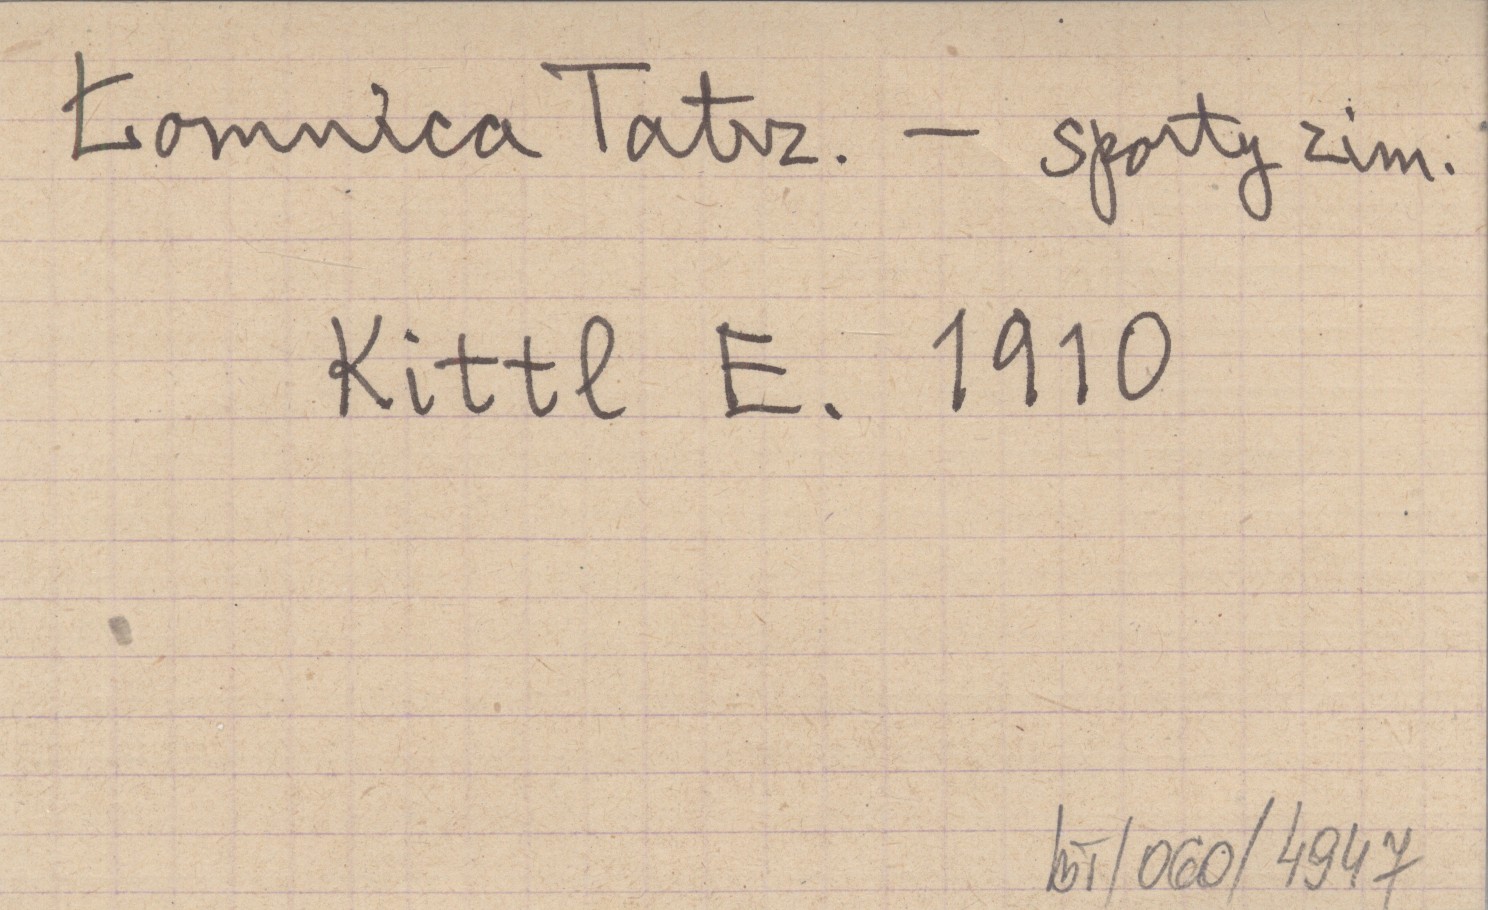 Łomnica Tatrz. — sporty zim.
Kittl E. 1910
/060/4947